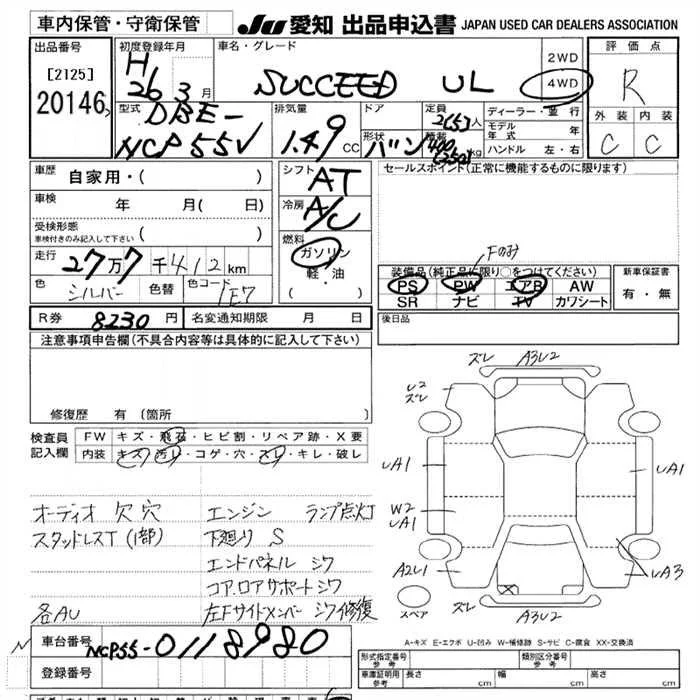 車内保管・守衛保管
JU 愛知 出品申込書 JAPAN USED CAR DEALERS ASSOCIATION
出品番号
[2125]
20146
初度登録年月
H 26 3月
車名・グレード
SUCCEED UL
2WD
4WD
評価点
R
外装 内装
C C
型式
DBE-
NCP55V
排気量
1.49 CC
ドア
形状
バン
定員
2(5)人
積載
400
(250)kg
ディーラー・並行
モデル年式 年
ハンドル 左・右
車歴
自家用・( )
車検 年 月( 日)
受検形態
車検付きのみ記入して下さい ( )
走行 27万7千412km
色 シルバー 色替 色コード 1E7
R券 8230円 名変通知期限 月 日
シフト
AT
冷房
A/C
燃料
ガソリン
軽・油
( )
セールスポイント(正常に機能するものに限ります)
Fのみ
装備品(純正品に限り○をつけてください)
PS PW エアB AW
SR ナビ TV カワシート
新車保証書
有・無
後日品
注意事項申告欄(不具合内容等は具体的に記入して下さい)
修復歴 有(箇所
検査員記入欄
FW キズ・飛石・ヒビ割・リペア跡・X要
内装 キズ・汚レ・コゲ・穴・スレ・キレ・破レ
オーディオ欠穴
スタッドレスT(1部)
各AU
エンジン ランプ点灯
下廻り S
エンドパネル シワ
コア.ロアサポートシワ
左Fサイドメンバー シワ修復
ズレ A3U2
U2
ズレ
UA1
UA1
W2
UA1
A2U1
UA3
スペア
ズレ A3U2
A-キズ E-エクボ U-凹み W-補修跡 S-サビ C-腐食 XX-交換済
車台番号 NCP55-0118980
登録番号
形式指定番号
参考
類別区分番号
参考
車庫証明用
参考
長さ cm 幅 cm 高さ cm